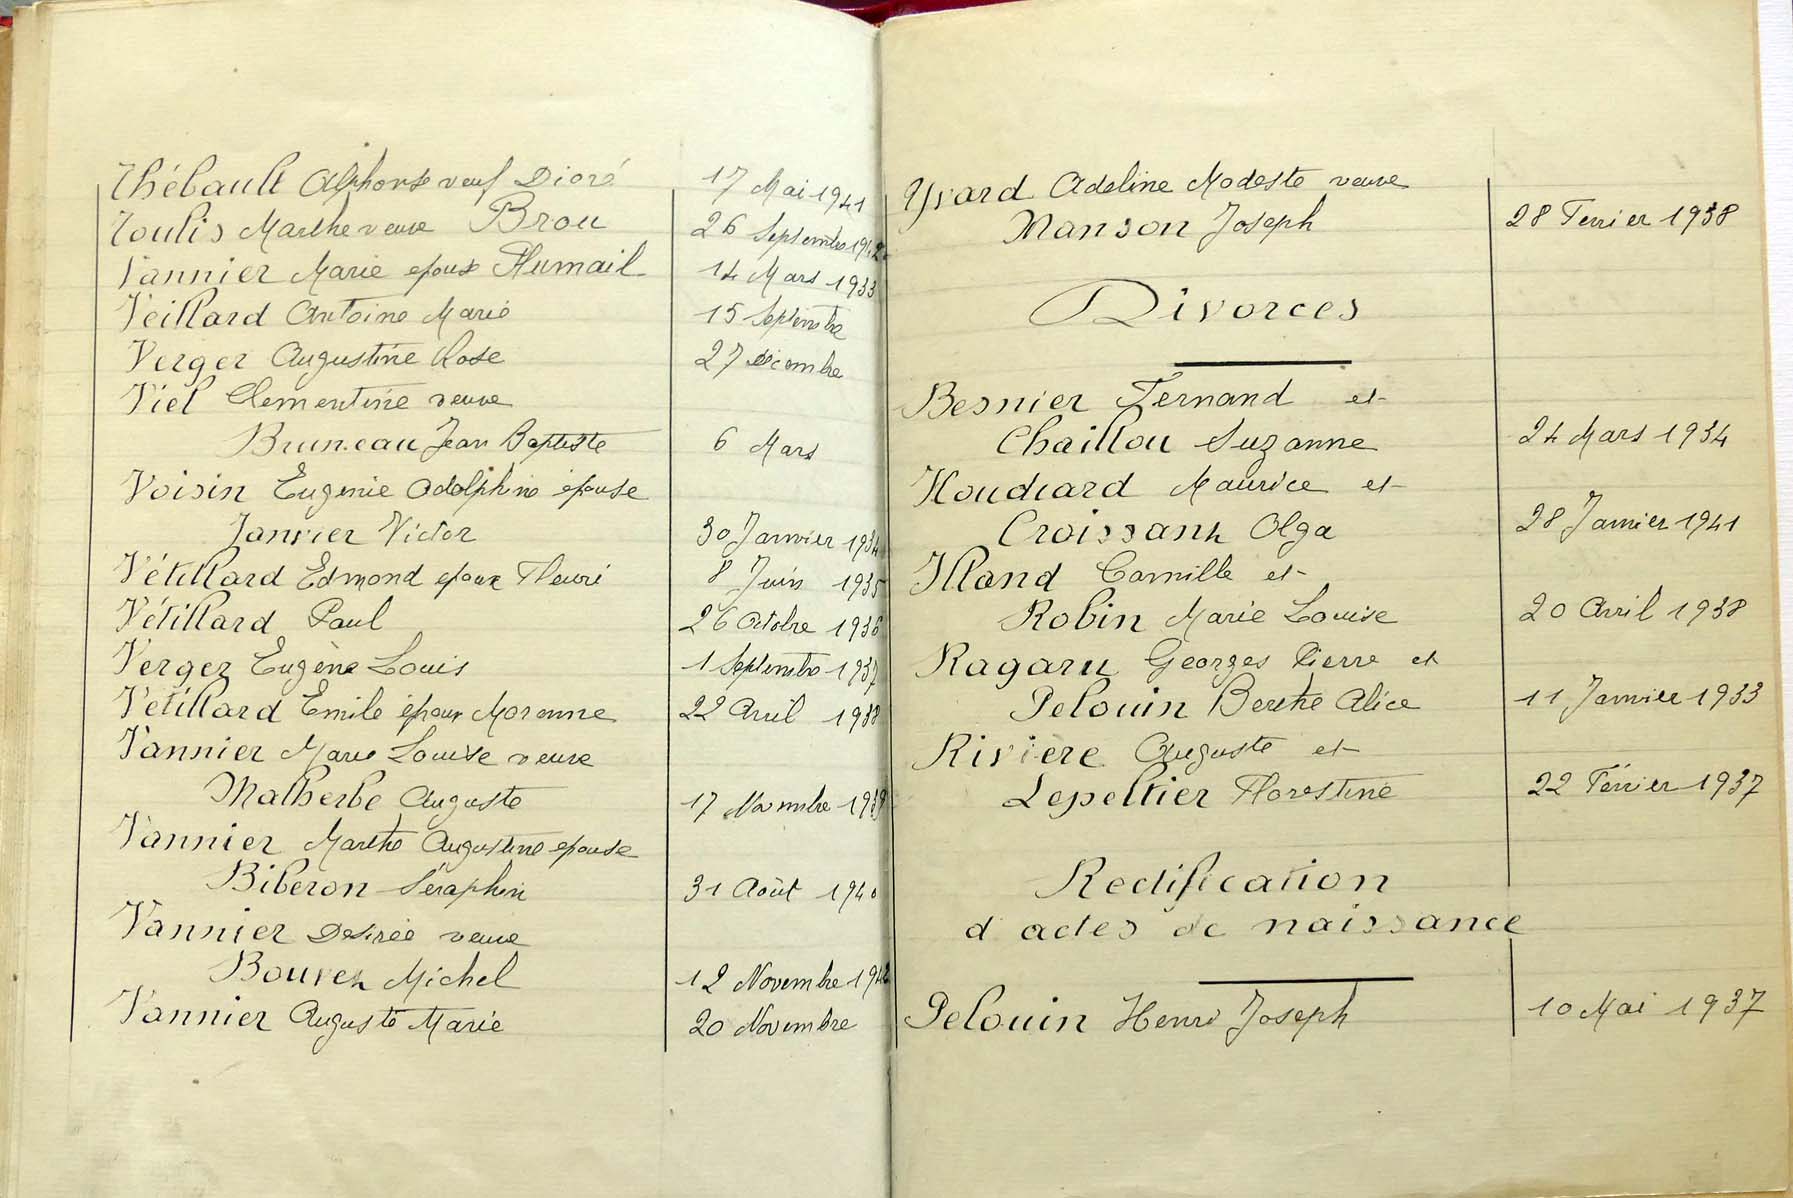 Thébault Alphonse veuf Dioré 17 Mai 1941
Toulis Marthe veuve Brou 26 Septembre 1942
Vannier Marie epoux Humail 14 Mars 1933
Veillard Antoine Marie 15 Septembre
Verger Augustine Rose 27 Décembre
Viel Clementine veuve
Bruneau Jean Baptiste 6 Mars
Voisin Eugenie Adolphine épouse
Janvier Victor 30 Janvier 1934
Vétillard Edmond epoux Fleuri 8 Juin 1935
Vétillard Paul 26 Octobre 1936
Verger Eugène Louis 1 Septembre 1937
Vétillard Emile époux Moronne 22 Avril 1938
Vannier Marie Louise veuve
Malherbe Auguste 17 Novembre 1939
Vannier Marthe Augustine epouse
Biberon Séraphin 31 Août 1940
Vannier Desirée veuve
Bouvet Michel 12 Novembre 1942
Vannier Auguste Marie 20 Novembre
Yvard Adeline Modeste veuve
Manson Joseph 28 Fevrier 1938
Divorces
Besnier Fernand et
Chaillou Suzanne 24 Mars 1934
Houdiard Maurice et
Croissant Olga 28 Janvier 1941
Illand Camille et
Robin Marie Louise 20 Avril 1938
Ragaru Georges Pierre et
Pelouin Berthe Alice 11 Janvier 1933
Rivière Auguste et
Lepeltier Florestine 22 Février 1937
Rectification
d'actes de naissance
Pelouin Henri Joseph 10 Mai 1937